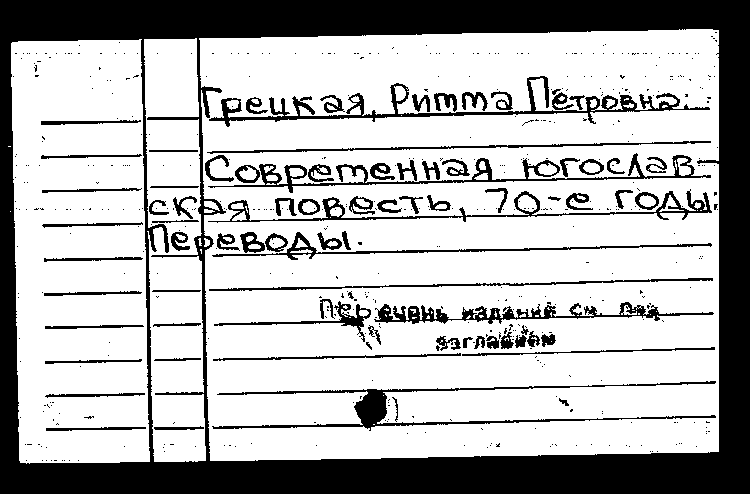 Грецкая, Римма Петровна:
Современная югослав-
ская повесть, 70-е годы:
Переводы.
Перечень изданий см. под
заглавием